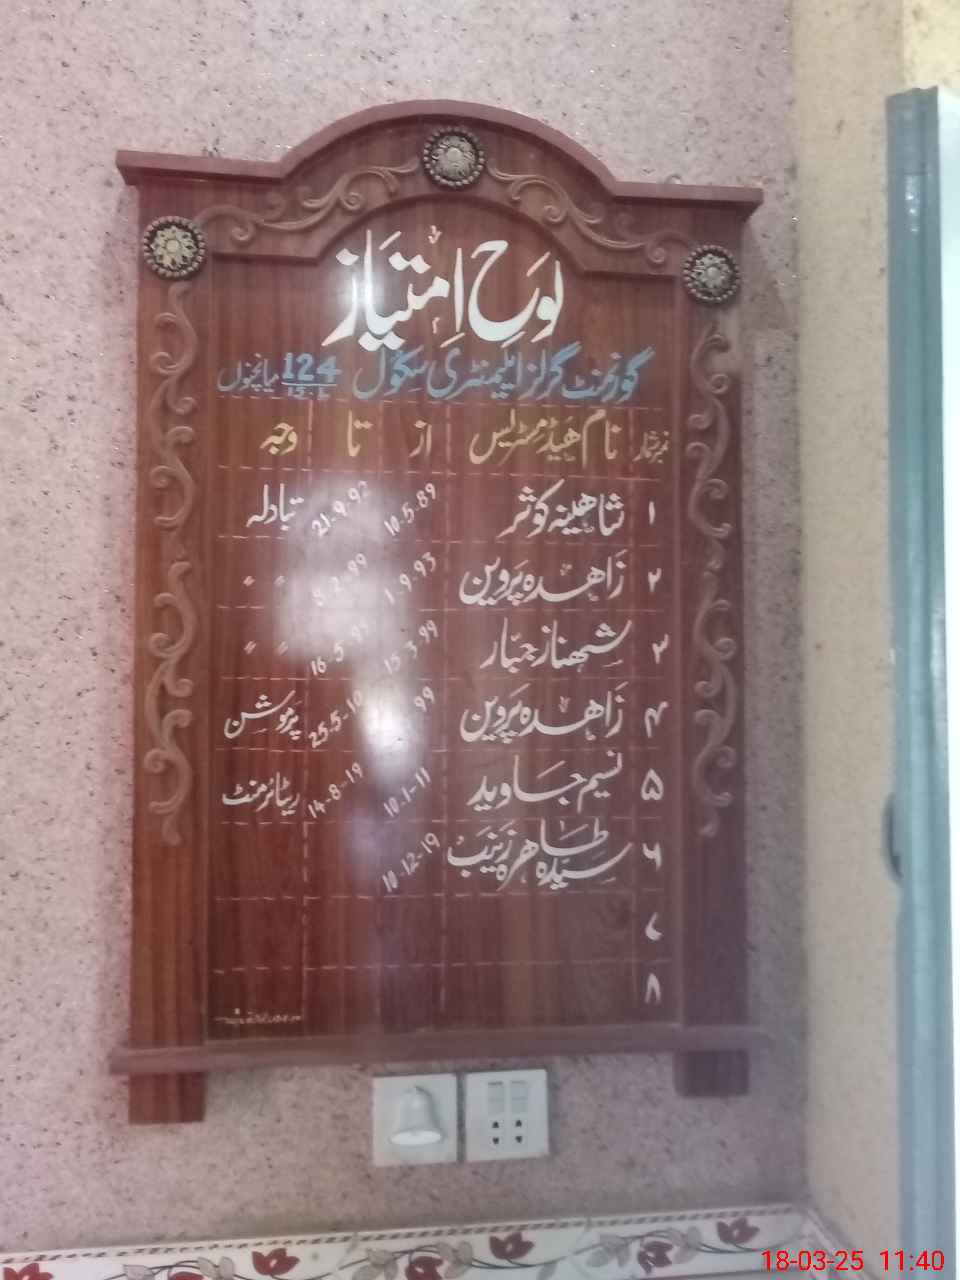 لوحِ اِمتیاز
گورنمنٹ گرلز ایلیمنٹری سکول 124/15-L میانچنوں
نمبر شمار نام ھیڈ مسٹریس از تا وجہ
۱ شاھینہ کوثر 10-5-89 21-9-92 تبادلہ
۲ زاھدہ پروین 1-9-93 2-99 〃 〃
۳ شہناز جبّار 15-3-99 16-5-99 〃 〃
۴ زاھدہ پروین 99 25-5-10 پرموشن
۵ نسیم جاوید 10-1-11 14-8-19 ریٹائرمنٹ
۶ سیّدہ طاھرہ زینب 10-12-19
۷
۸
18-03-25 11:40